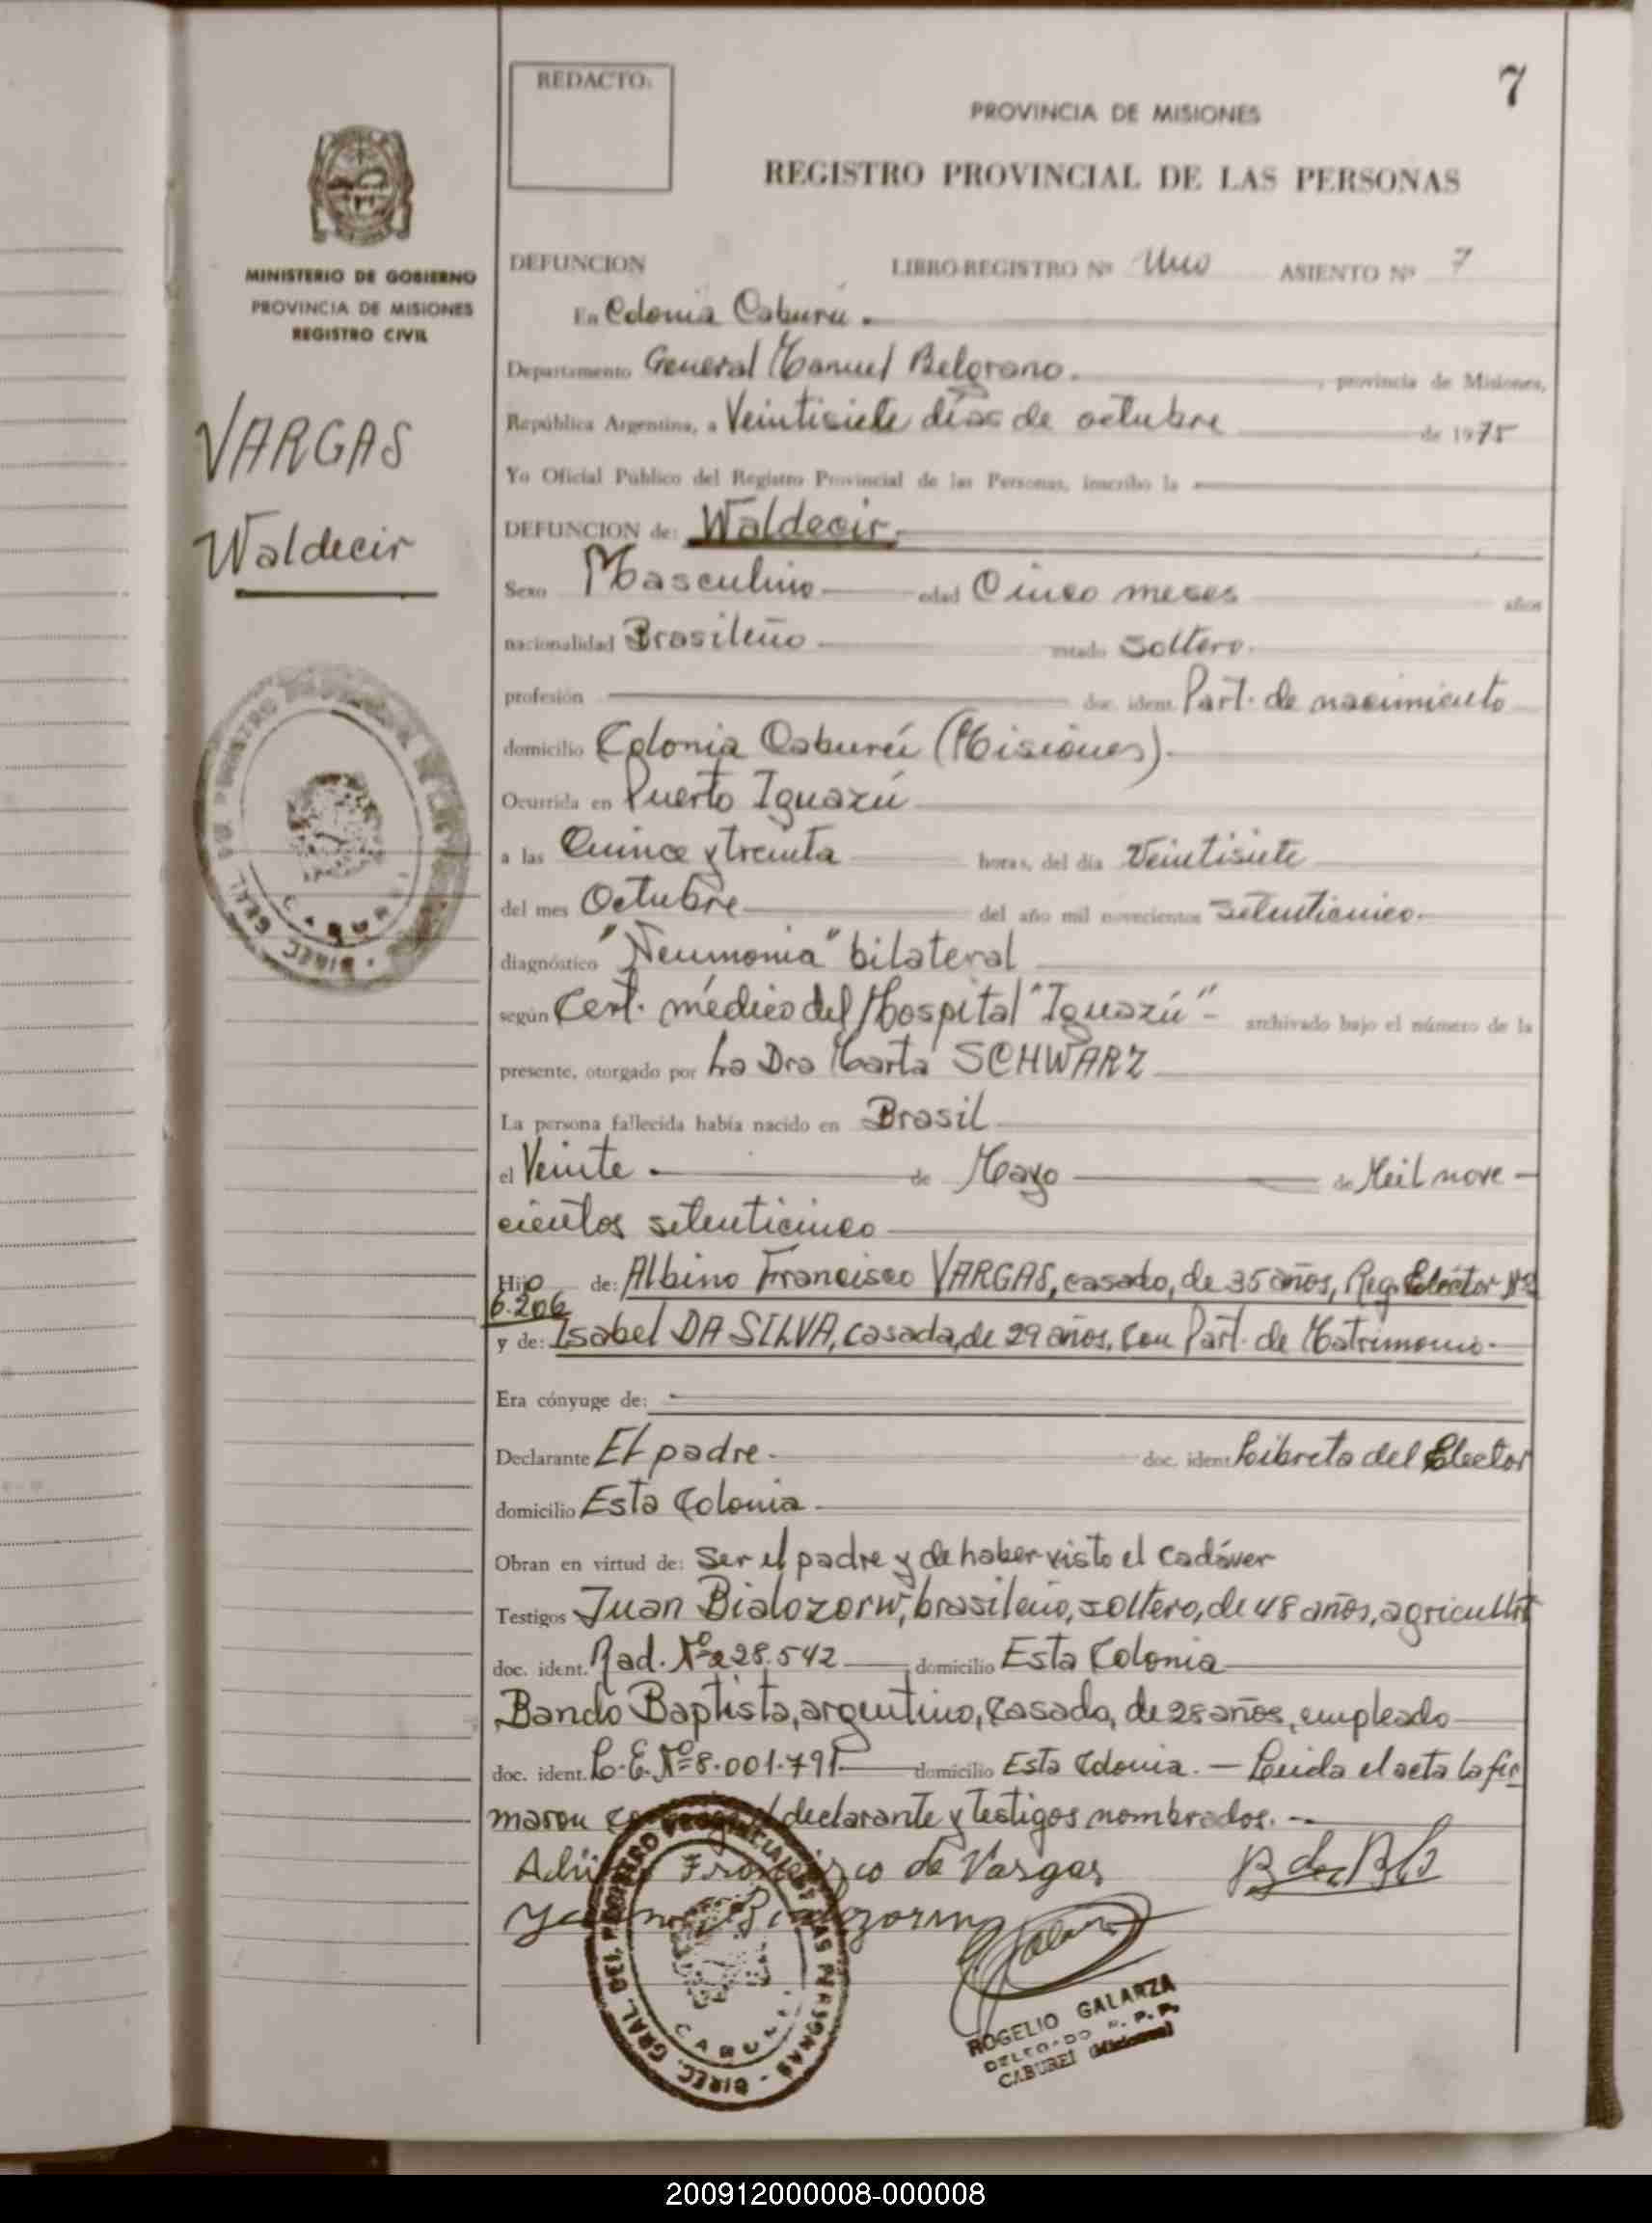 7
REDACTO:
PROVINCIA DE MISIONES
REGISTRO PROVINCIAL DE LAS PERSONAS
MINISTERIO DE GOBIERNO
PROVINCIA DE MISIONES
REGISTRO CIVIL
VARGAS
Waldecir
DEFUNCION LIBRO-REGISTRO Nº Uno ASIENTO Nº 7
En Colonia Caburéi.
Departamento General Manuel Belgrano. , provincia de Misiones,
República Argentina, a Veintisiete días de octubre de 1975
Yo Oficial Público del Registro Provincial de las Personas, inscribo la
DEFUNCION de: Waldecir.
Sexo Masculino edad Cinco meses años
nacionalidad Brasileño estado Soltero.
profesión doc. ident. Part. de nacimiento
domicilio Colonia Caburéi (Misiones).
Ocurrida en Puerto Iguazú
a las Quince y treinta horas, del día Veintisiete
del mes Octubre del año mil novecientos Setenticinco.
diagnóstico "Neumonia" bilateral
según Cert. médico del Hospital "Iguazú" - archivado bajo el número de la
presente, otorgado por La Dra Marta SCHWARZ
La persona fallecida había nacido en Brasil
el Veinte. de Mayo de Mil nove-
cientos setenticinco
Hijo de: Albino Francisco VARGAS, casado, de 35 años, Reg. Elector Nº
6.206
y de: Isabel DA SILVA, casada, de 29 años, con Part. de Matrimonio.
Era cónyuge de:
Declarante El padre. doc. ident. Libreta del Elector
domicilio Esta Colonia.
Obran en virtud de: Ser el padre y de haber visto el cadáver
Testigos Juan Bialozorw, brasileño, soltero, de 48 años, agricultor
doc. ident. Rad. Nº 228.542 domicilio Esta Colonia
Bando Baptista, argentino, casado, de 28 años, empleado
doc. ident. L.E. Nº 8.001.791 domicilio Esta Colonia. - Leida el acta la fir
maron declarante y testigos nombrados. -
Francisco de Vargas
ROGELIO GALARZA
DELEGADO R. P. P.
CABUREI (Misiones)
DIREC. GRAL. DEL REGISTRO PROVINCIAL DE LAS PERSONAS
CABUREI
200912000008-000008